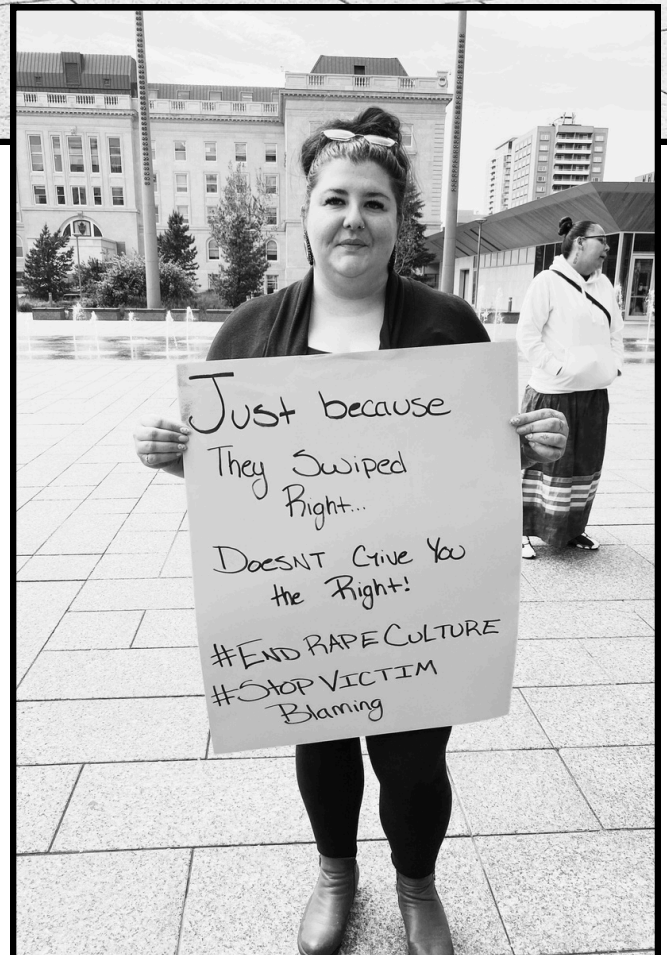 Just because
They Swiped
Right...
DOESNT Give You
the Right!
#END RAPE CULTURE
#STOP VICTIM
Blaming